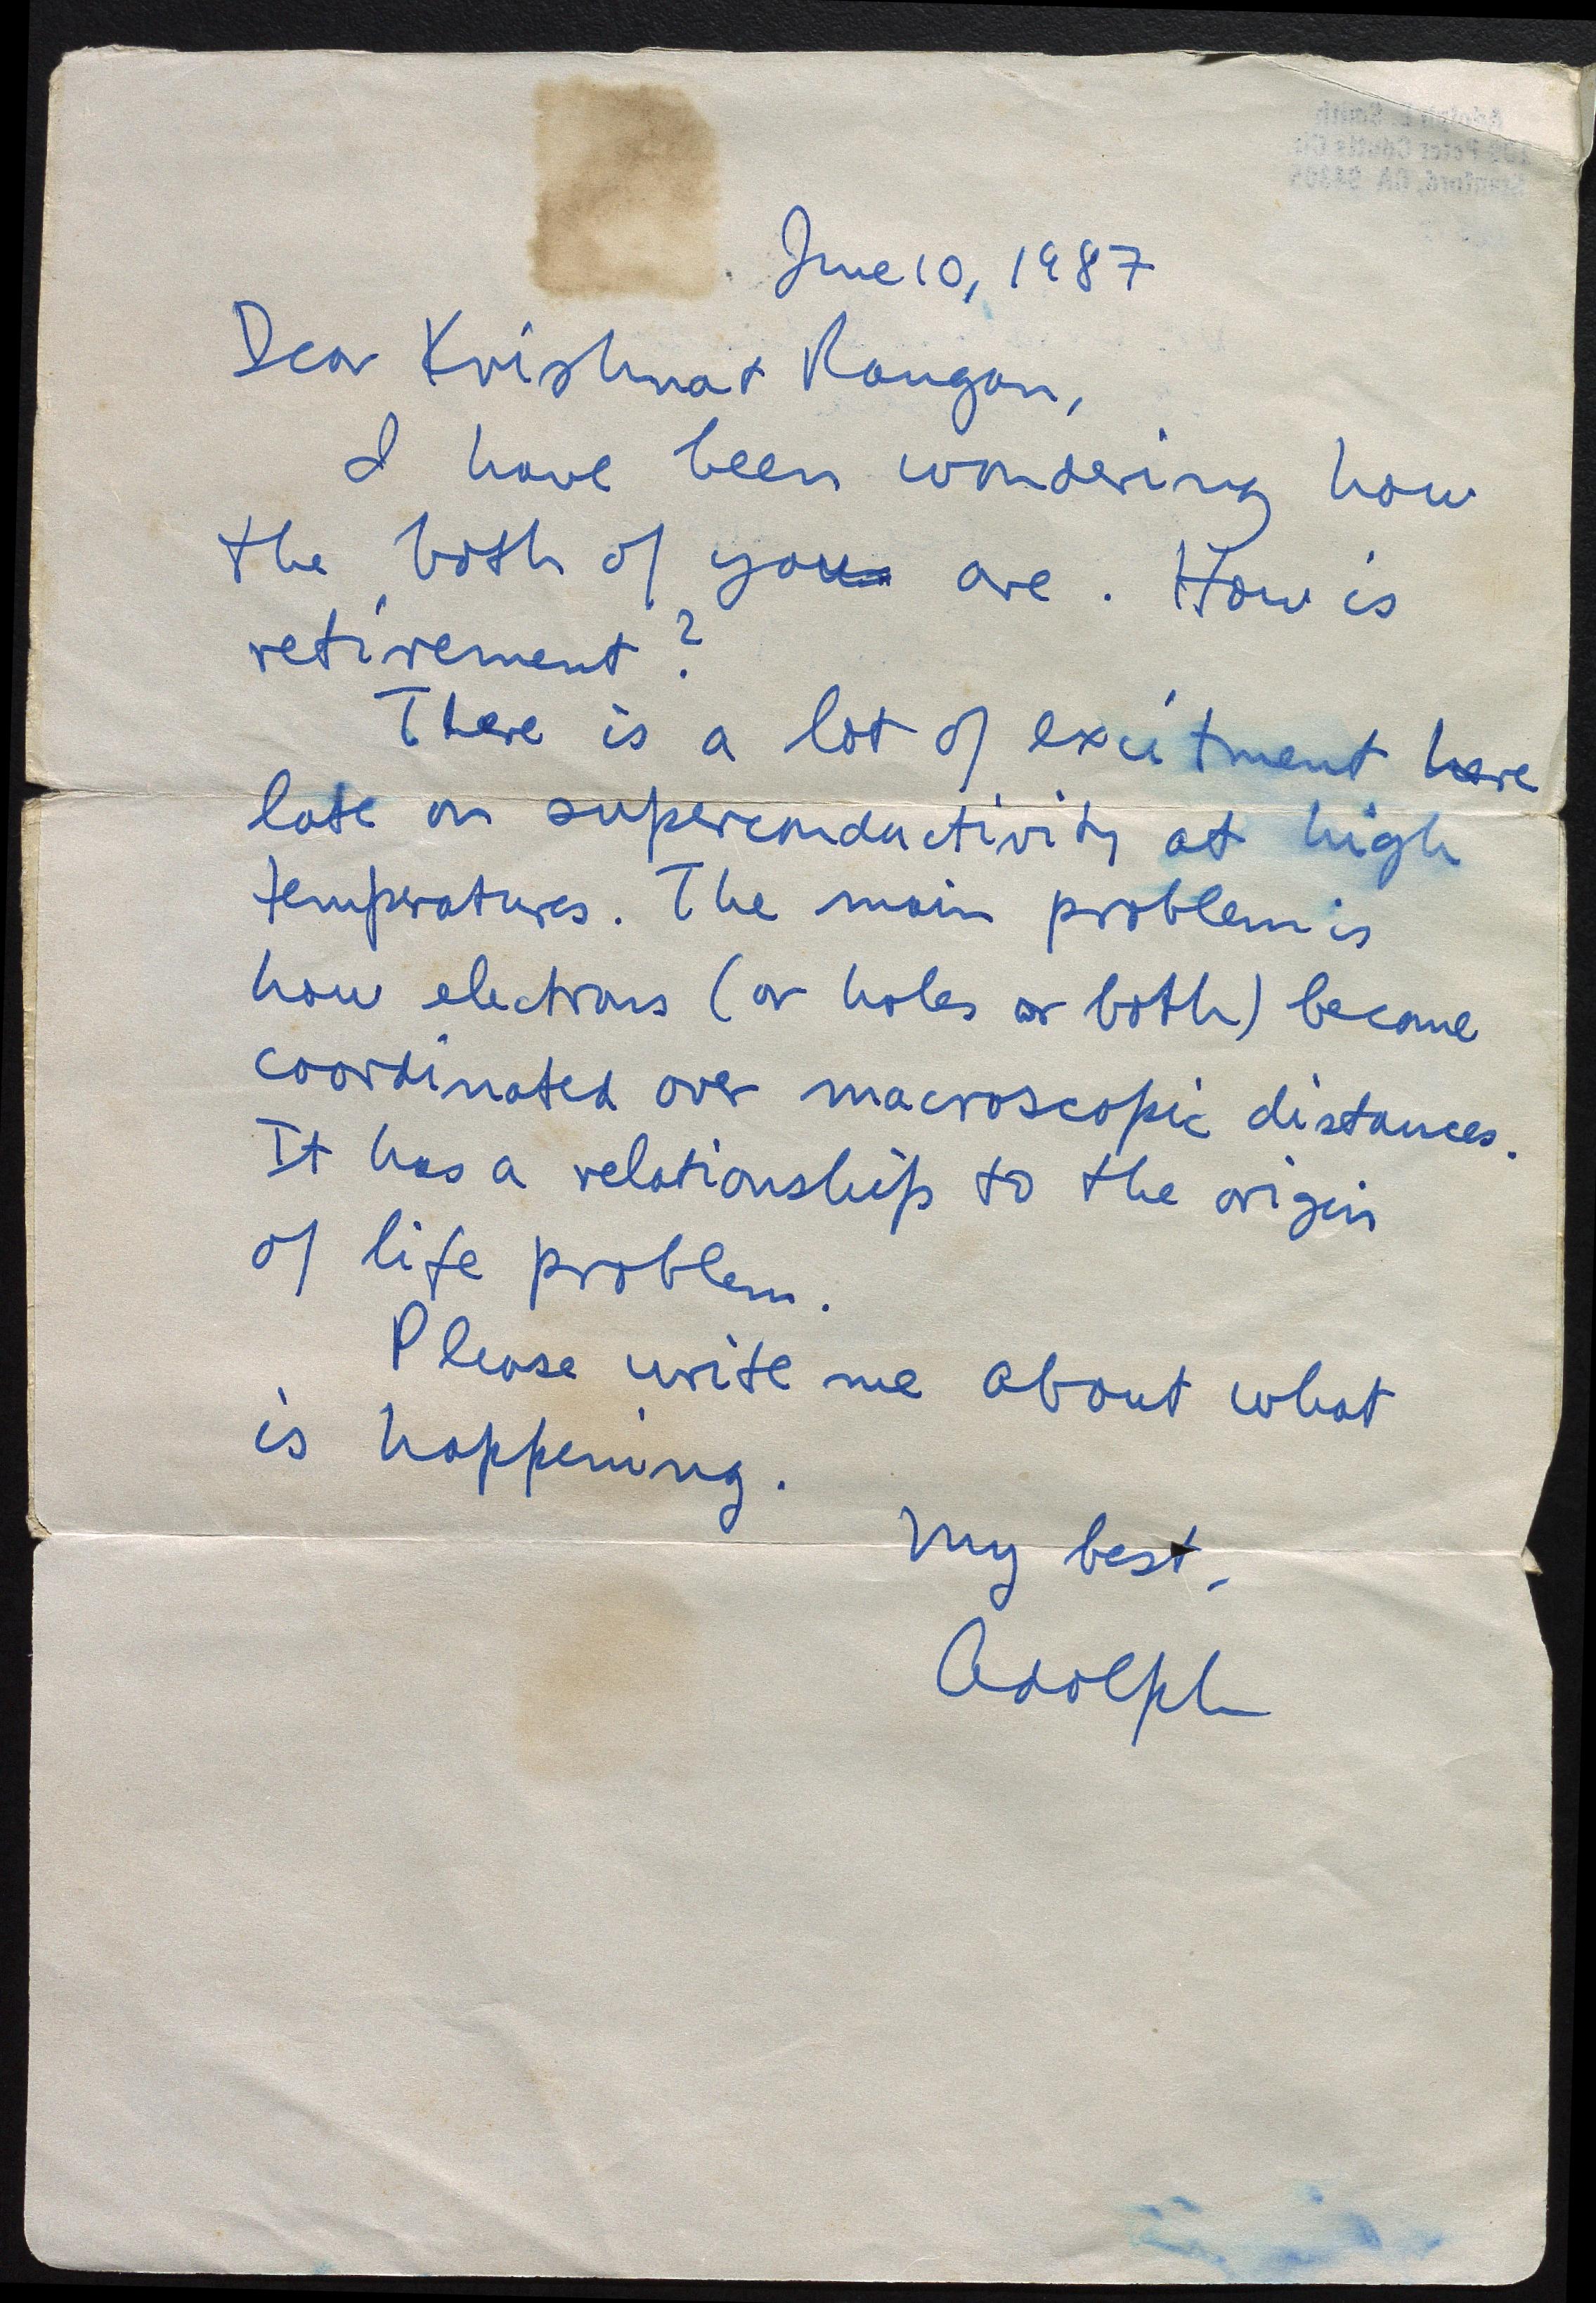 Adolph L. Smith
Peter Coutts Cir
Stanford, CA 94305
June 10, 1987
Dear Krishna + Rangan,
I have been wondering how
the both of you are. How is
retirement?
There is a lot of excitment here
late on superconductivity at high
temperatures. The main problem is
how electrons (or holes or both) become
coordinated over macroscopic distances.
It has a relationship to the origin
of life problem.
Please write me about what
is happening.
My best,
Adolph